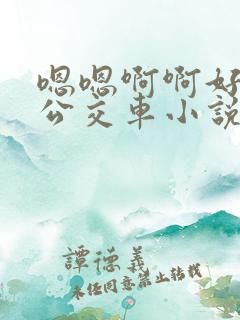 嗯嗯啊啊好
公交车小说
譚德義
未经同意禁止转载